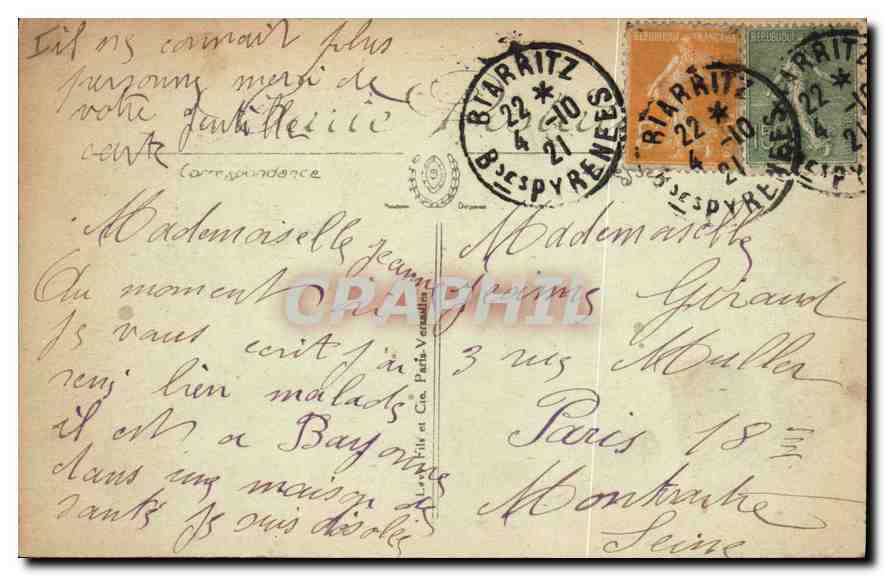 il ne connait plus
personne merci de
votre gentille
carte
Correspondance
Mademoiselle Jeanne
Au moment où
je vous ecrit j'ai
René bien malade
il est a Bayonne
dans une maison de
santé je suis désolée
Lévy Fils et Cie, Paris-Versailles
Mademoiselle
Jeanne Giraud
3 rue Muller
Paris 18 e
Montmartre
Seine
REPUBLIQUE FRANÇAISE
REPUBLIQUE
BIARRITZ
22 * -10
4 21
BSES PYRENEES
BIARRITZ
22 * -10
4 21
SES PYRENEES
ARRITZ
22 * -10
4 21
BSES PY
CPAPHIL